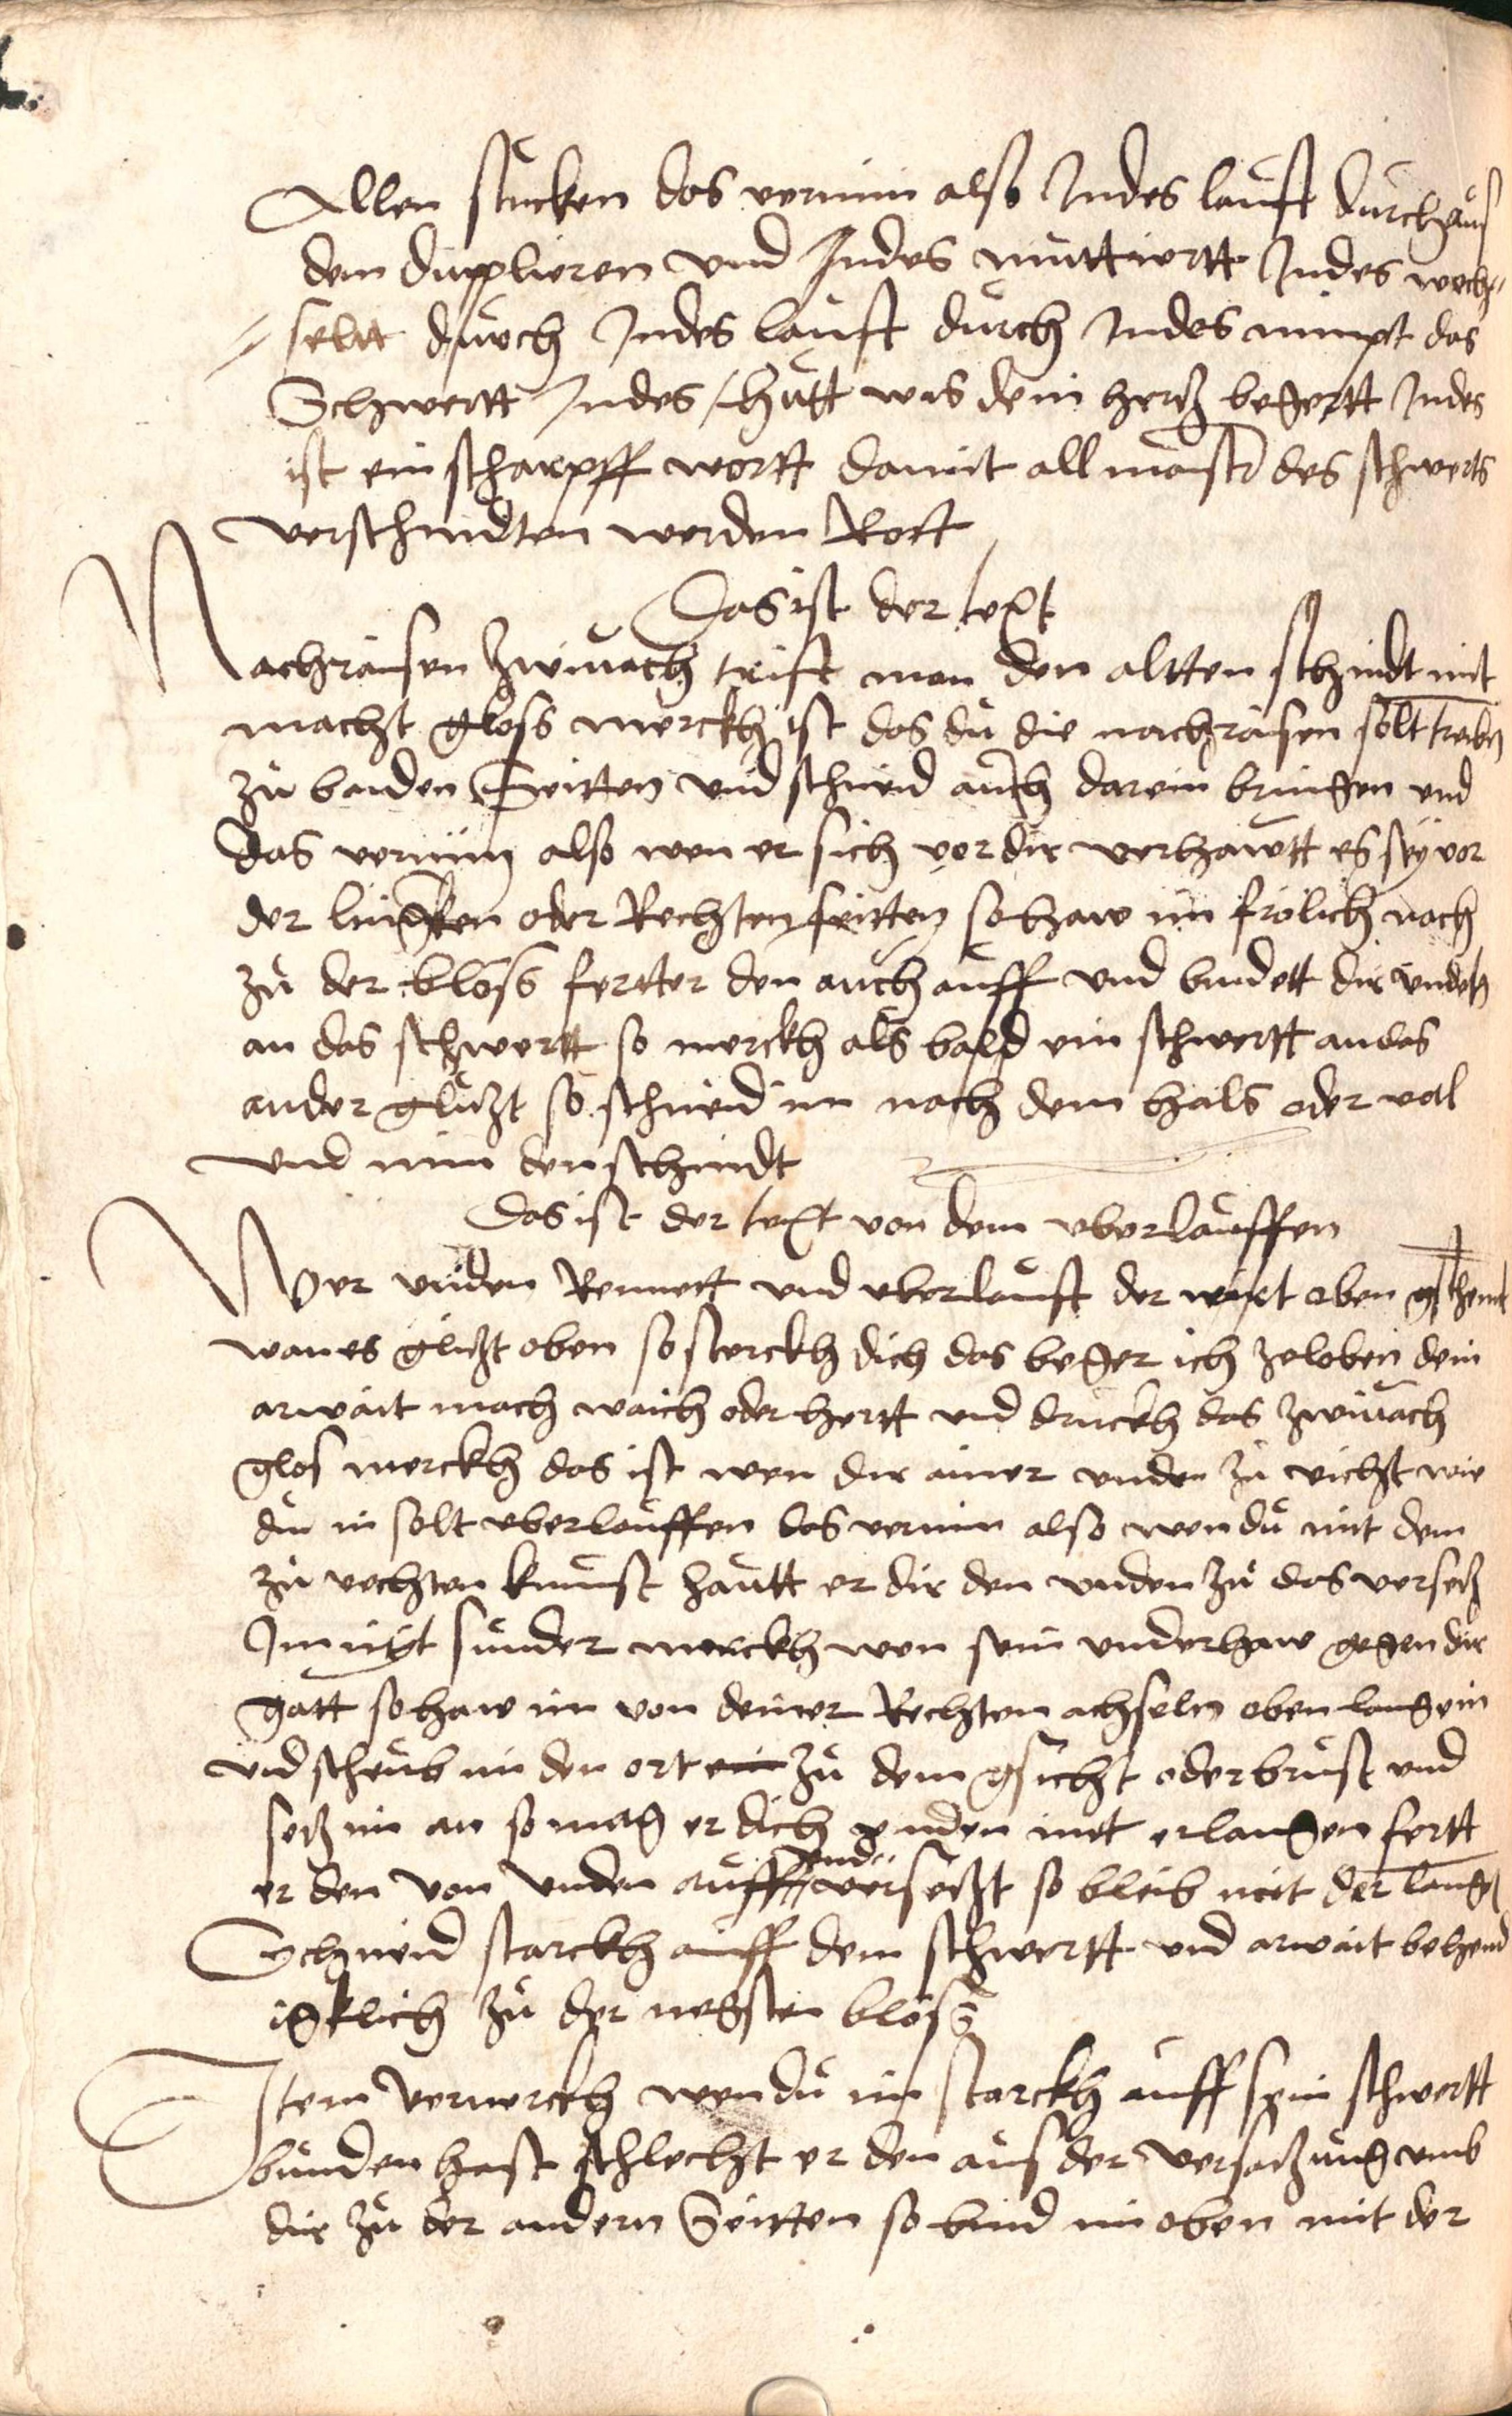 Allen stucken das vernim also Indes lauft durchaus
dem dupplieren und Indes muttiertt Indes wech„
„seltt durch Indes lauft durch Indes nimpt das
Schwertt Indes / thutt was dein hertz begertt Indes
ist ein scharpff wortt damit all maistr des schwerts
verschnidten werden Rott
Das ist der text
Nachraisen zwimach trift man den altten schnidt mit
macht gloss merckh ist das du die nachraisen solt treiben
zu baiden Seitten und schneid auch darein bringen und
das vernim also wen er sich vor dir verhawtt es sey vor
der lingken oder Rechten seitten so haw im frölich nach
zu der blöss fertter den auch auff und bindett dir unden
an das schwertt so merckh als bald ein schwertt an das
ander glützt so schneid im nach dem hals oder val
und nim den schnidt
Das ist der text von dem uberlauffen
Wer unden Remett und uberlauft der wirt oben gschent
wan es glitzt oben so sterckh dich das beger ich ze loben dein
arwait mach waich oder hertt und druckh das zwimach
glos merckh das ist wen dir ainer unden zu vichst wie
du in solt uberlauffen das vernim also wen du mit dem
zu vechten kumst hautt er dir den unden zu das versetz
Im nigt sunder merckh wen sein underhaw gegen dir
gatt so haw im von deiner Rechten achseln oben lang ein
und scheub im den ort ein zu dem gsicht oder brust und
setz im an so mag er dich unden nit erlangen fertt
er den von unden auff und versetzt so bleib mit der langen
Schneid starckh auff dem schwertt und arwait behend
igklich zu der negsten blöss
Item vermerckh wen du im starckh auff sein schwertt
bunden hast schlecht er den aus der versatzung umb
dir zu der andern Seitten so bind im oben mit der